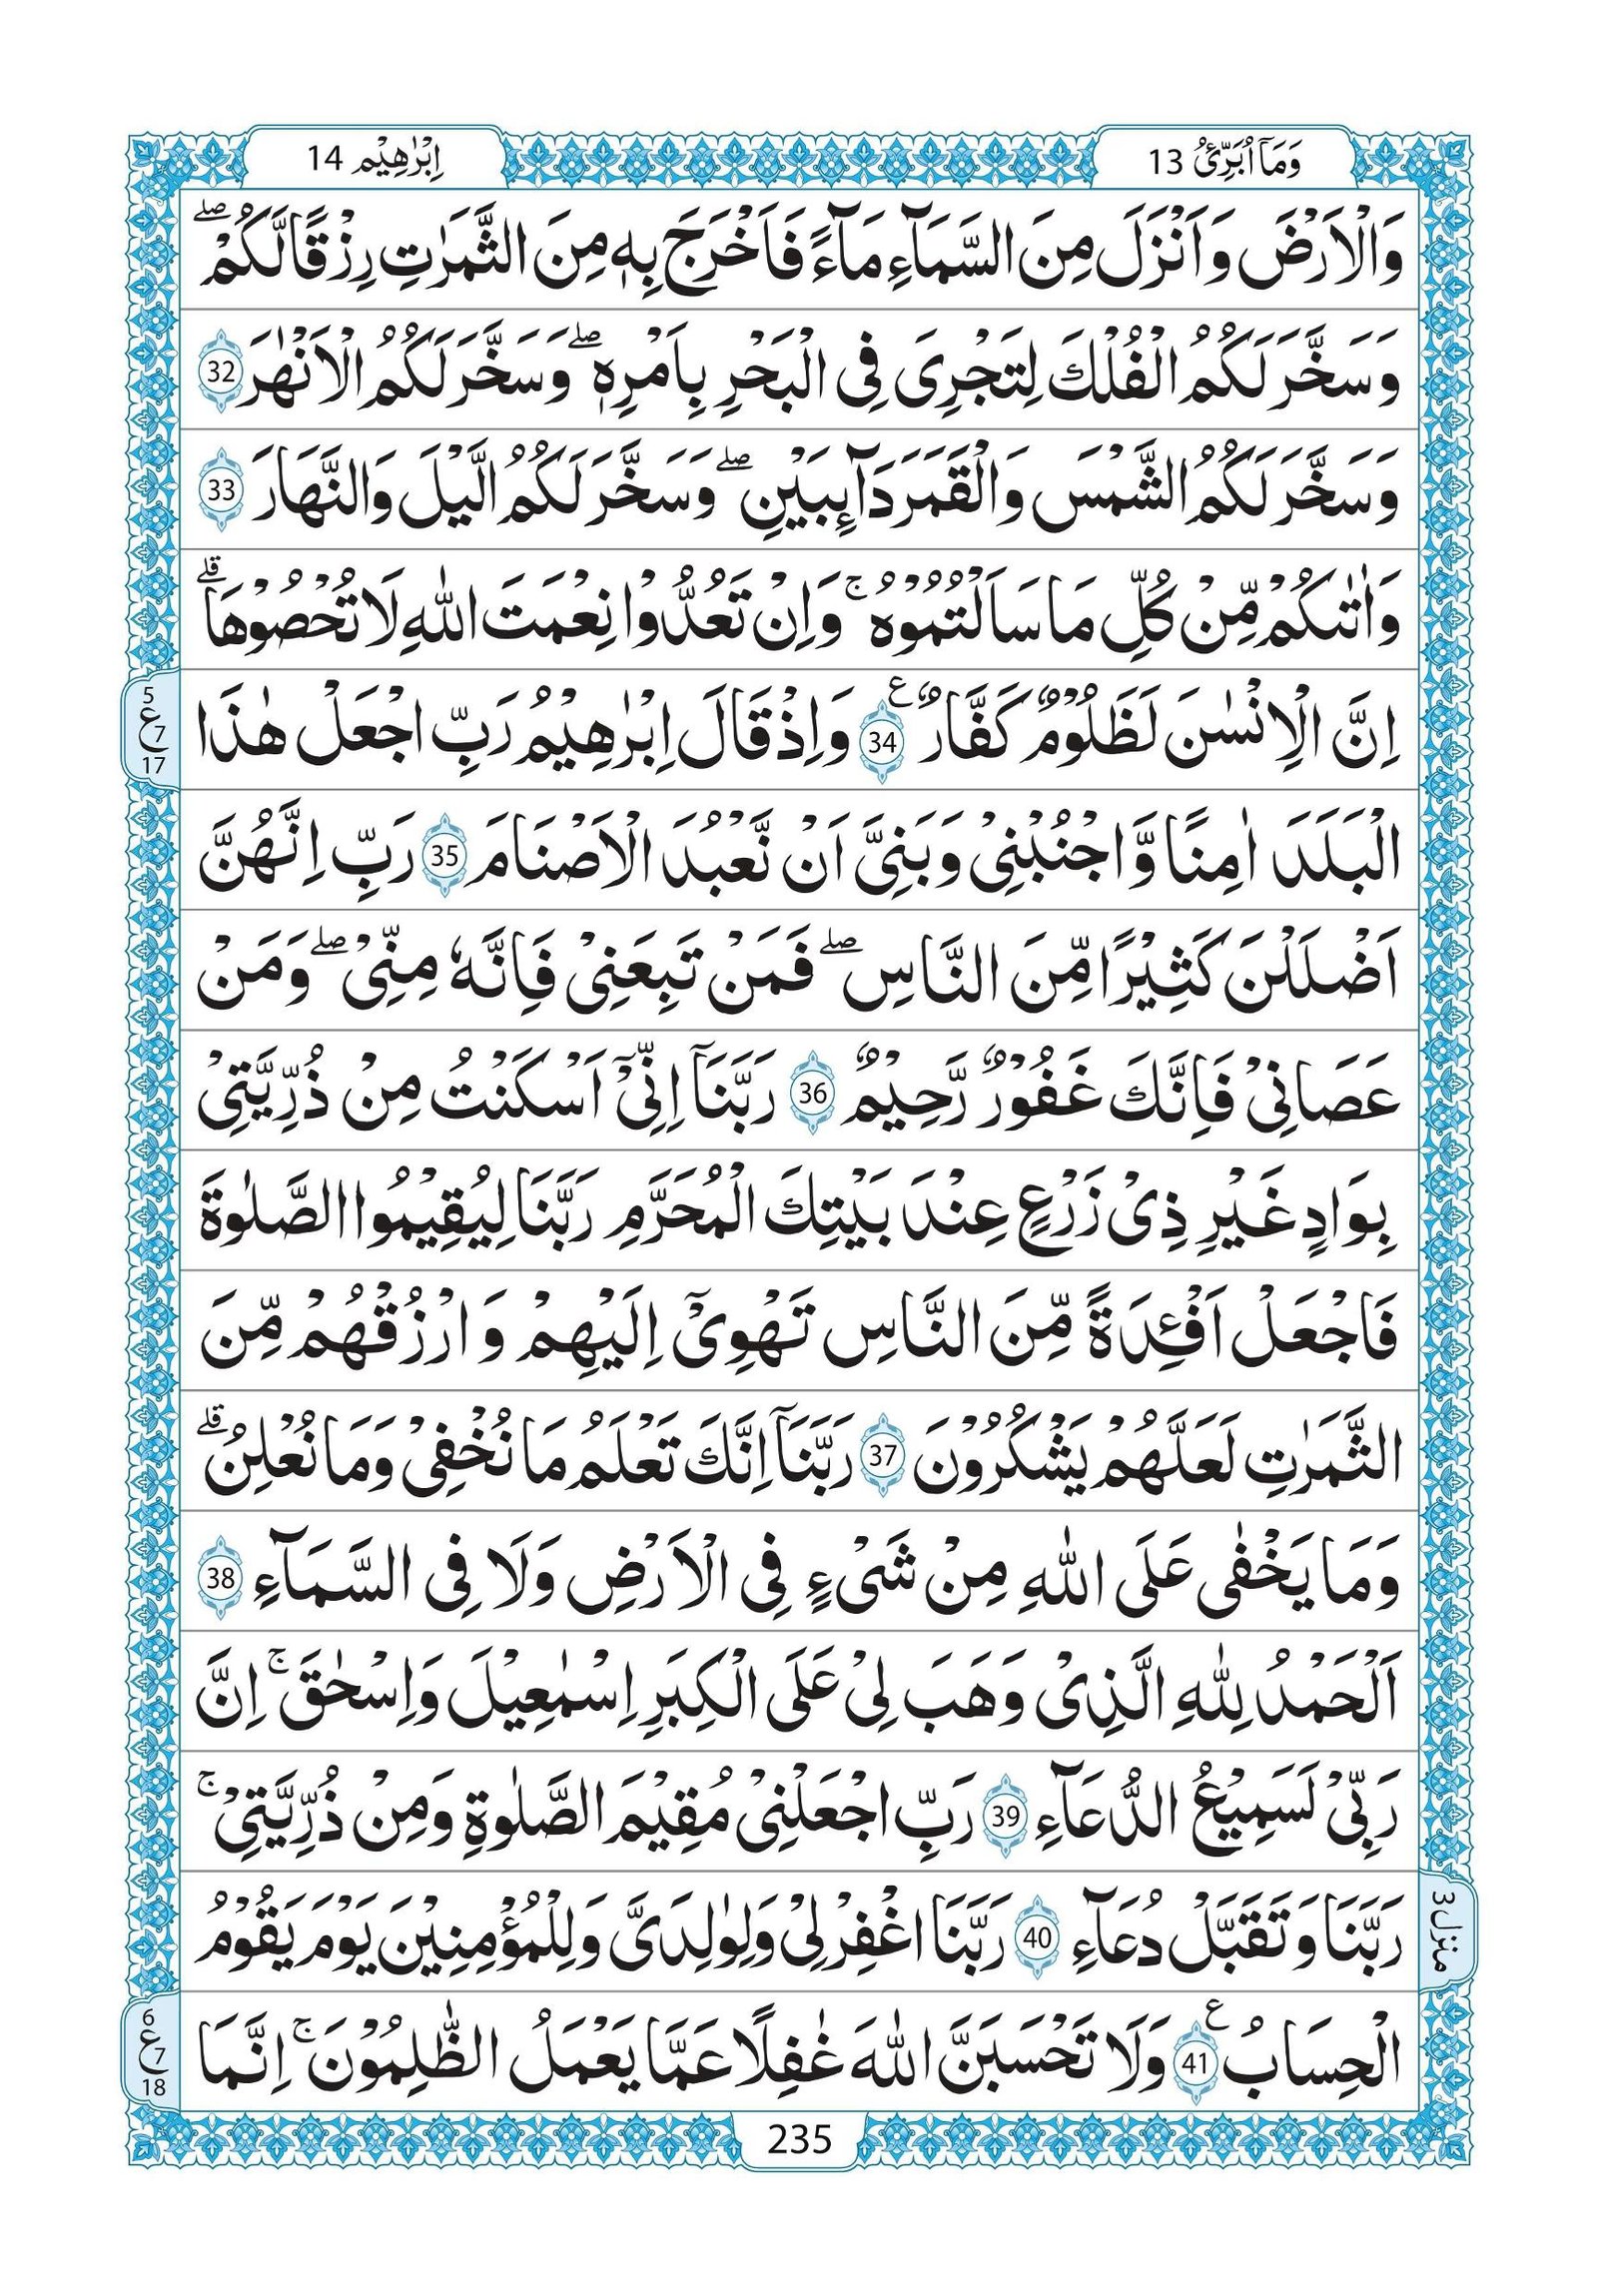 وَمَاۤ اُبَرِّئُ 13
اِبْرٰهِيْم 14
وَالْاَرْضَ وَاَنْزَلَ مِنَ السَّمَآءِ مَآءً فَاَخْرَجَ بِهٖ مِنَ الثَّمَرٰتِ رِزْقًا لَّكُمْ ۖ
وَسَخَّرَ لَكُمُ الْفُلْكَ لِتَجْرِىَ فِى الْبَحْرِ بِاَمْرِهٖ ۖ وَسَخَّرَ لَكُمُ الْاَنْهٰرَ 32
وَسَخَّرَ لَكُمُ الشَّمْسَ وَالْقَمَرَ دَآئِبَيْنِ ۖ وَسَخَّرَ لَكُمُ الَّيْلَ وَالنَّهَارَ 33
وَاٰتٰىكُمْ مِّنْ كُلِّ مَا سَاَلْتُمُوْهُ ۚ وَاِنْ تَعُدُّوْا نِعْمَتَ اللّٰهِ لَا تُحْصُوْهَا ۗ
اِنَّ الْاِنْسٰنَ لَظَلُوْمٌ كَفَّارٌ ع 34 وَاِذْ قَالَ اِبْرٰهِيْمُ رَبِّ اجْعَلْ هٰذَا
5
ع 7
17
الْبَلَدَ اٰمِنًا وَّاجْنُبْنِىْ وَبَنِىَّ اَنْ نَّعْبُدَ الْاَصْنَامَ 35 رَبِّ اِنَّهُنَّ
اَضْلَلْنَ كَثِيْرًا مِّنَ النَّاسِ ۖ فَمَنْ تَبِعَنِىْ فَاِنَّهٗ مِنِّىْ ۖ وَمَنْ
عَصَانِىْ فَاِنَّكَ غَفُوْرٌ رَّحِيْمٌ 36 رَبَّنَاۤ اِنِّىْۤ اَسْكَنْتُ مِنْ ذُرِّيَّتِىْ
بِوَادٍ غَيْرِ ذِىْ زَرْعٍ عِنْدَ بَيْتِكَ الْمُحَرَّمِ رَبَّنَا لِيُقِيْمُوا الصَّلٰوةَ
فَاجْعَلْ اَفْئِدَةً مِّنَ النَّاسِ تَهْوِىْۤ اِلَيْهِمْ وَارْزُقْهُمْ مِّنَ
الثَّمَرٰتِ لَعَلَّهُمْ يَشْكُرُوْنَ 37 رَبَّنَاۤ اِنَّكَ تَعْلَمُ مَا نُخْفِىْ وَمَا نُعْلِنُ ۗ
وَمَا يَخْفٰى عَلَى اللّٰهِ مِنْ شَىْءٍ فِى الْاَرْضِ وَلَا فِى السَّمَآءِ 38
اَلْحَمْدُ لِلّٰهِ الَّذِىْ وَهَبَ لِىْ عَلَى الْكِبَرِ اِسْمٰعِيْلَ وَاِسْحٰقَ ۚ اِنَّ
رَبِّىْ لَسَمِيْعُ الدُّعَآءِ 39 رَبِّ اجْعَلْنِىْ مُقِيْمَ الصَّلٰوةِ وَمِنْ ذُرِّيَّتِىْ ۚ
رَبَّنَا وَتَقَبَّلْ دُعَآءِ 40 رَبَّنَا اغْفِرْ لِىْ وَلِوٰلِدَىَّ وَلِلْمُؤْمِنِيْنَ يَوْمَ يَقُوْمُ
منزل 3
الْحِسَابُ ع 41 وَلَا تَحْسَبَنَّ اللّٰهَ غٰفِلًا عَمَّا يَعْمَلُ الظّٰلِمُوْنَ ۚ اِنَّمَا
6
ع 7
18
235